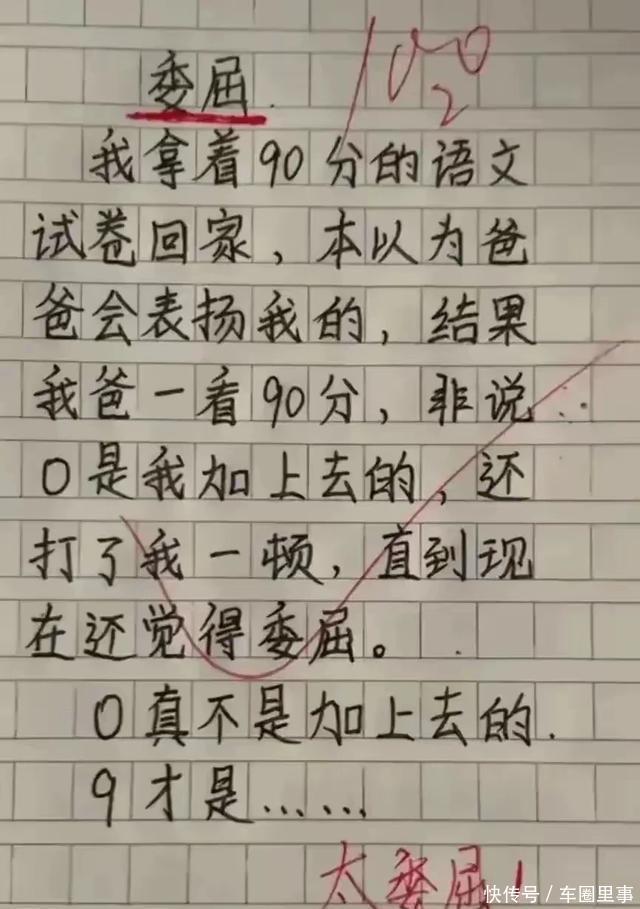 委屈.
100
2
我拿着90分的语文
试卷回家，本以为爸
爸会表扬我的，结果
我爸一看90分，非说
0是我加上去的，还
打了我一顿，直到现
在还觉得委屈。
0真不是加上去的.
9才是……
太委屈！
快传号／车圈里事